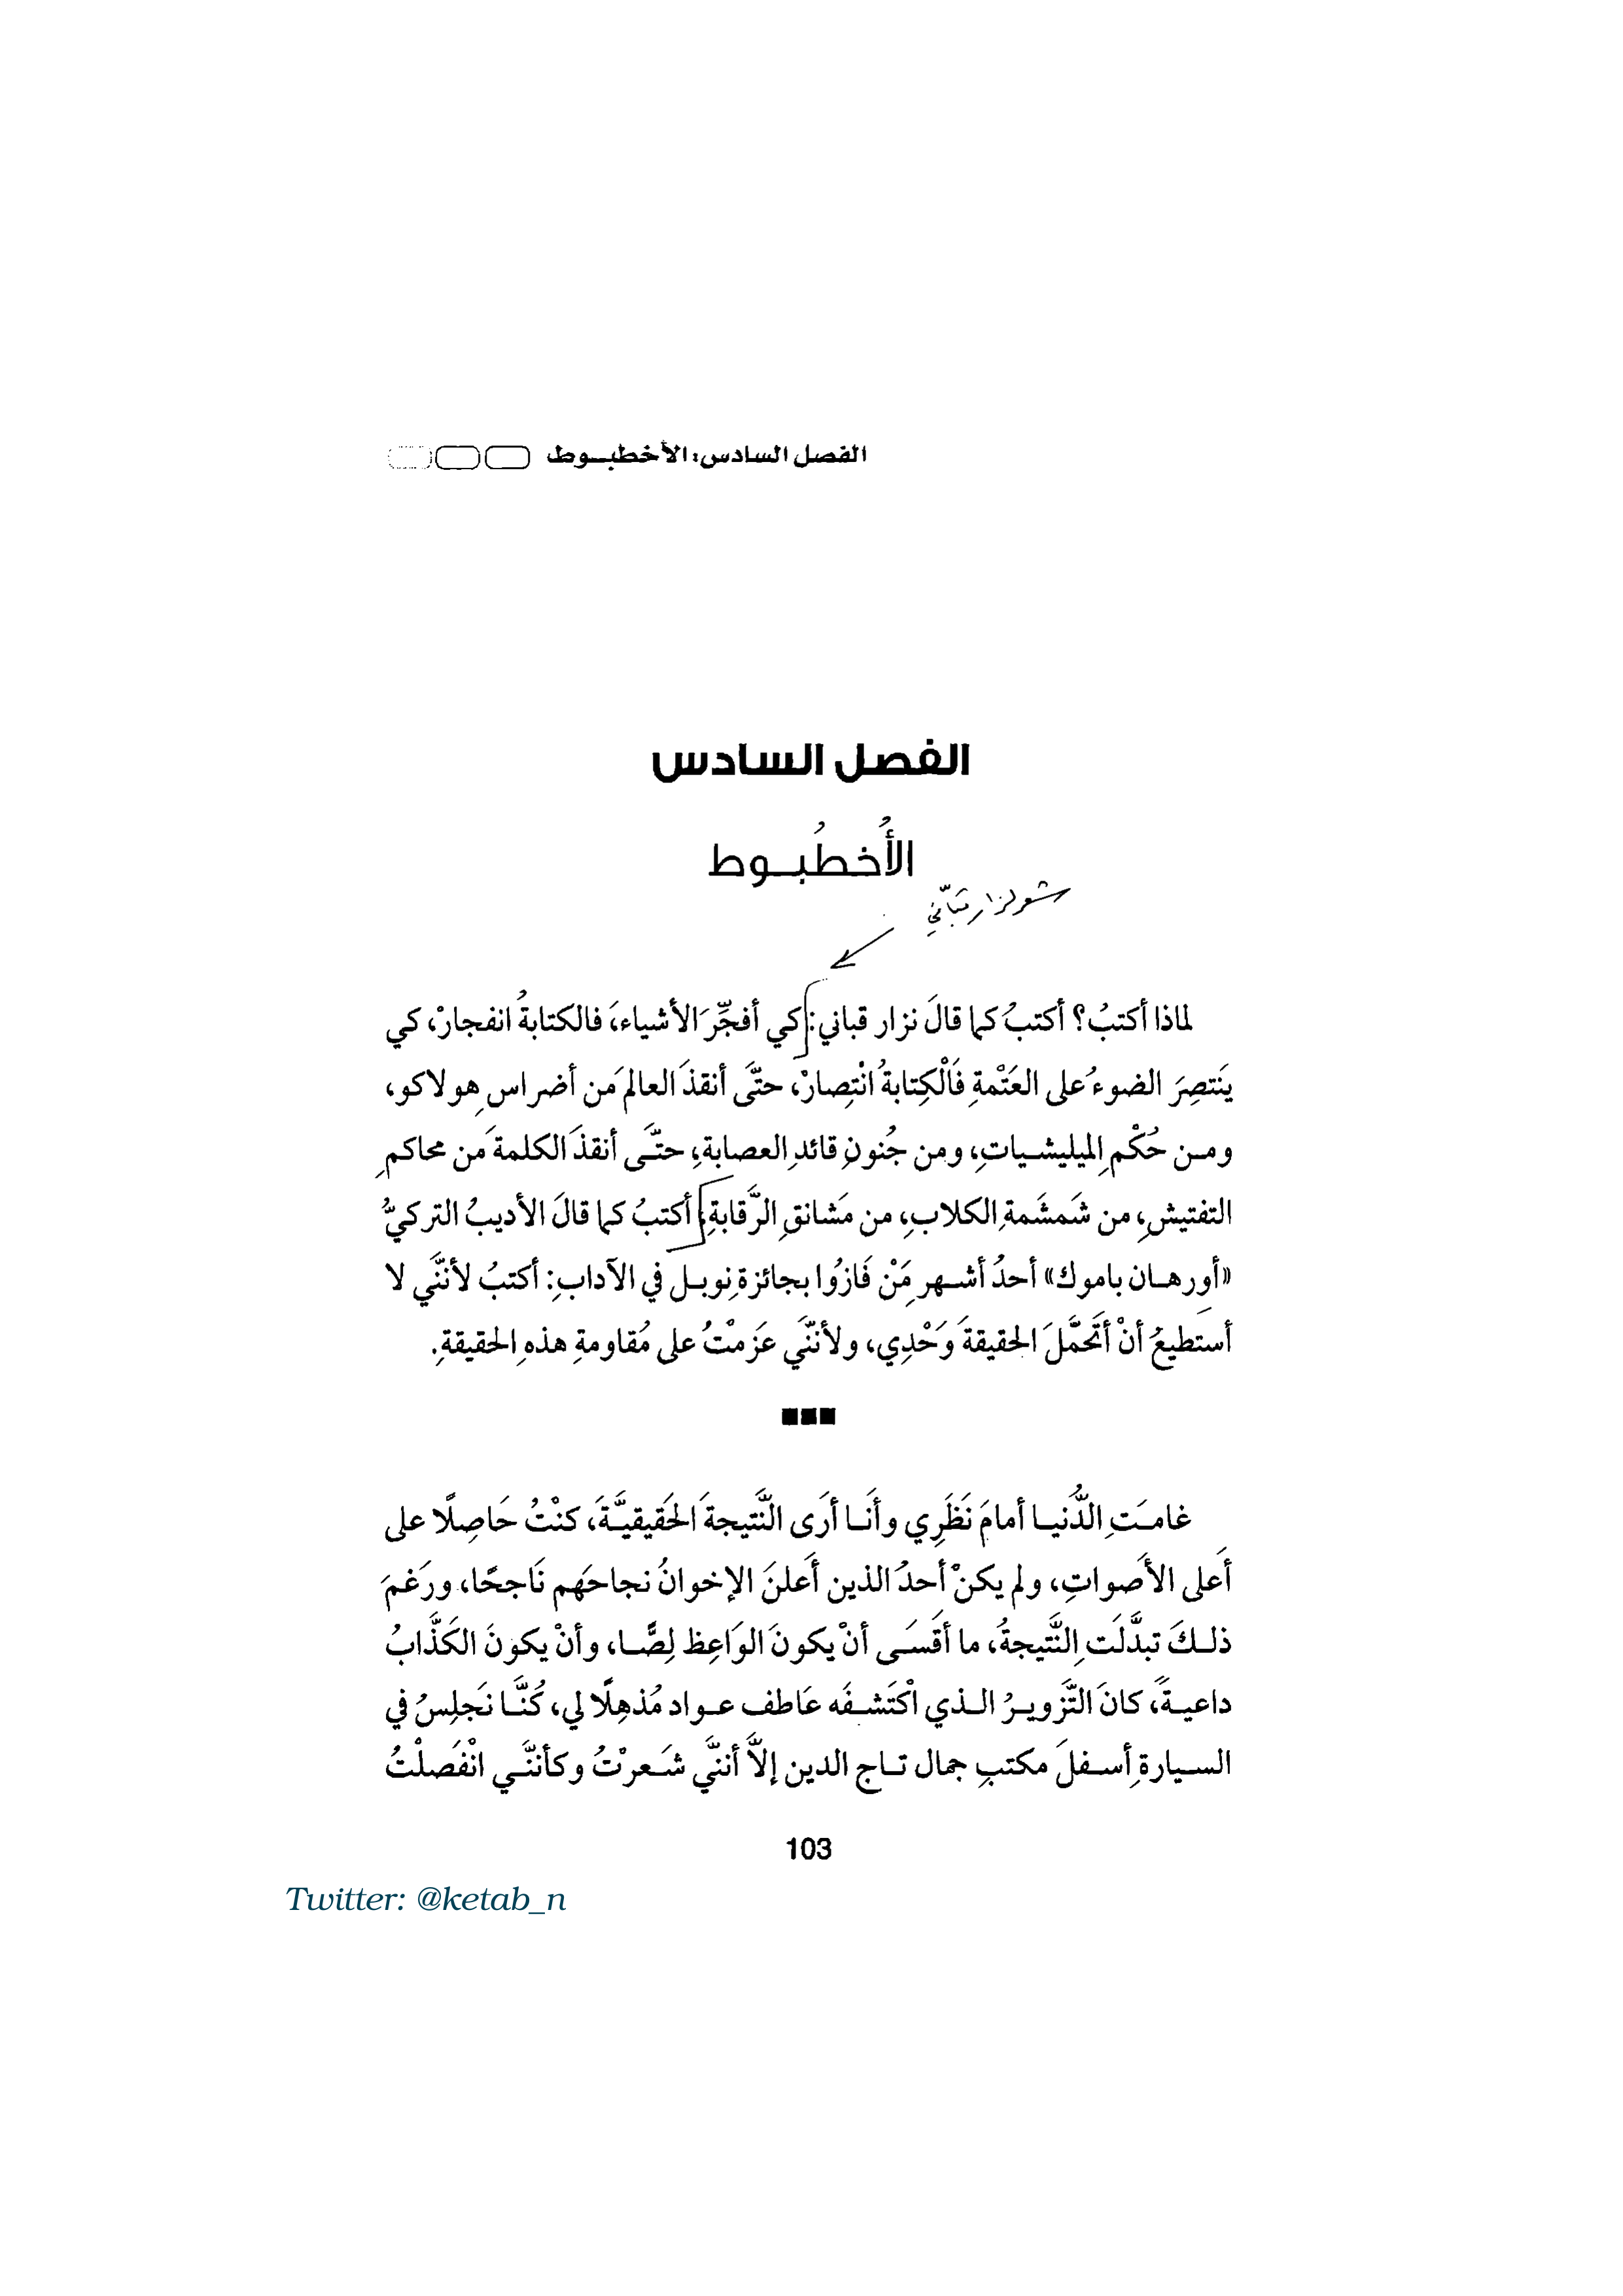 الفصل السادس: الأخطبـوط
الفصل السادس
الأُخطُبـوط
شعر لنزار قبّاني
لماذا أكتبُ؟ أكتبُ كما قالَ نزار قباني: كي أفجِّرَ الأشياء، فالكتابةُ انفجارْ، كي
يَنتصِرَ الضوءُ على العَتْمةِ فَالْكِتابةُ انْتِصارْ، حتَّى أنقذَ العالمَ من أضراسِ هولاكو،
ومـن حُكْمِ الميليشـياتِ، ومن جُنونِ قائدِ العصابةِ، حتَّـى أنقذَ الكلمةَ من محاكمِ
التفتيشِ، من شَمشَمةِ الكلابِ، من مَشانقِ الرَّقابةِ، أكتبُ كما قالَ الأديبُ التركيُّ
«أورهـان باموك» أحدُ أشـهرِ مَنْ فَازُوا بجائزةِ نوبـل في الآدابِ: أكتبُ لأنَّني لا
أستَطيعُ أنْ أتَحمَّلَ الحقيقةَ وَحْدِي، ولأنَّني عَزمْتُ على مُقاومةِ هذهِ الحقيقةِ.
غامـَتِ الدُّنيـا أمامَ نَظَرِي وأَنَـا أَرَى النَّتيجةَ الحَقيقيَّـةَ، كنْتُ حَاصِلًا على
أَعلى الأَصواتِ، ولم يكنْ أحدُ الذين أَعلنَ الإخوانُ نجاحَهم نَاجحًا، ورَغمَ
ذلـكَ تبدَّلَت النَّتيجةُ، ما أَقسَـى أنْ يكونَ الوَاعِظ لِصًّـا، وأنْ يكونَ الكَذَّابُ
داعيـةً، كانَ التَّزويـرُ الـذي اكْتَشـفَه عَاطف عـواد مُذهِلًا لي، كُنَّـا نَجلِسُ في
السـيارةِ أسـفلَ مكتبِ جمال تـاج الدين إلَّا أننَّي شَـعرْتُ وكأننَّـي انْفَصلْتُ
103
Twitter: @ketab_n